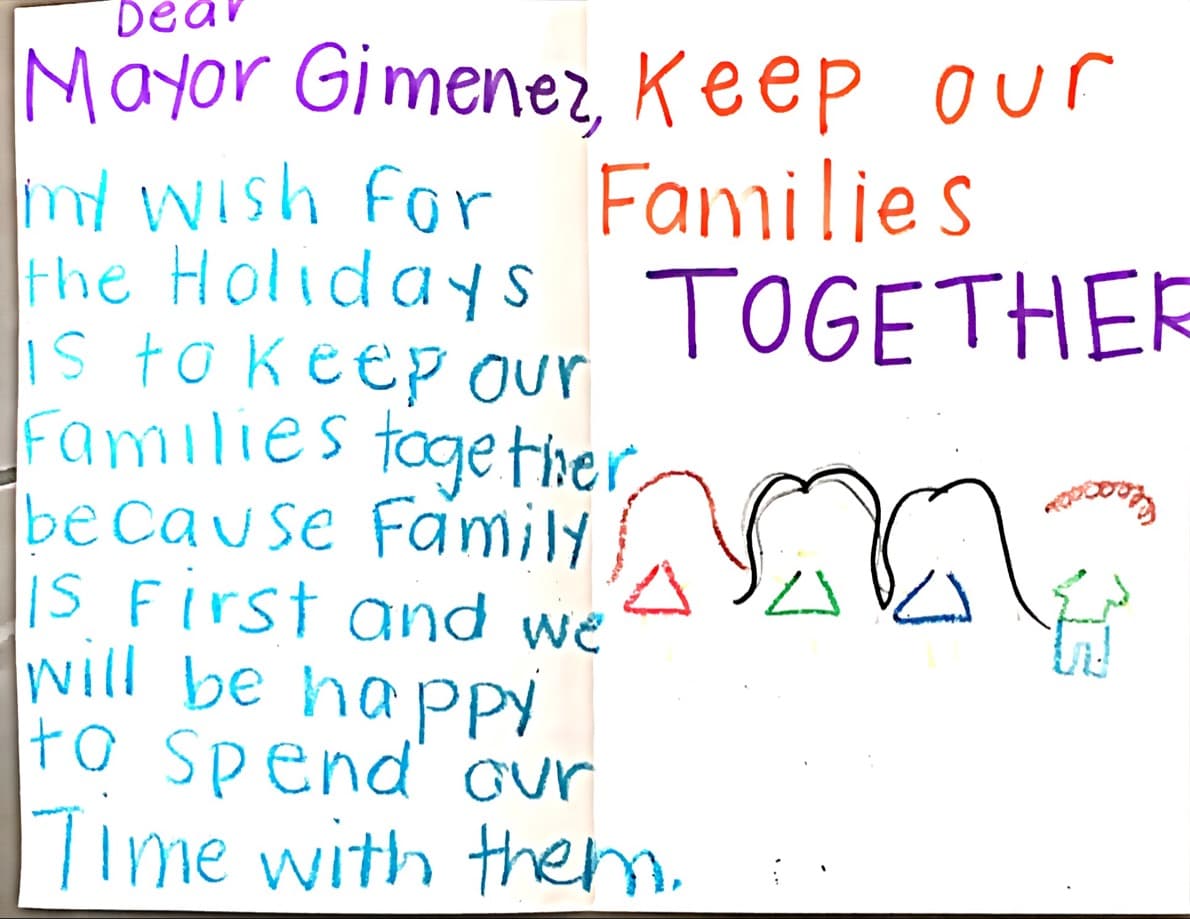 Dear
Mayor Gimenez,
my wish for
the Holidays
is to keep our
Families together
because Family
is First and we
will be happy
to spend our
Time with them.
Keep our
Families
TOGETHER